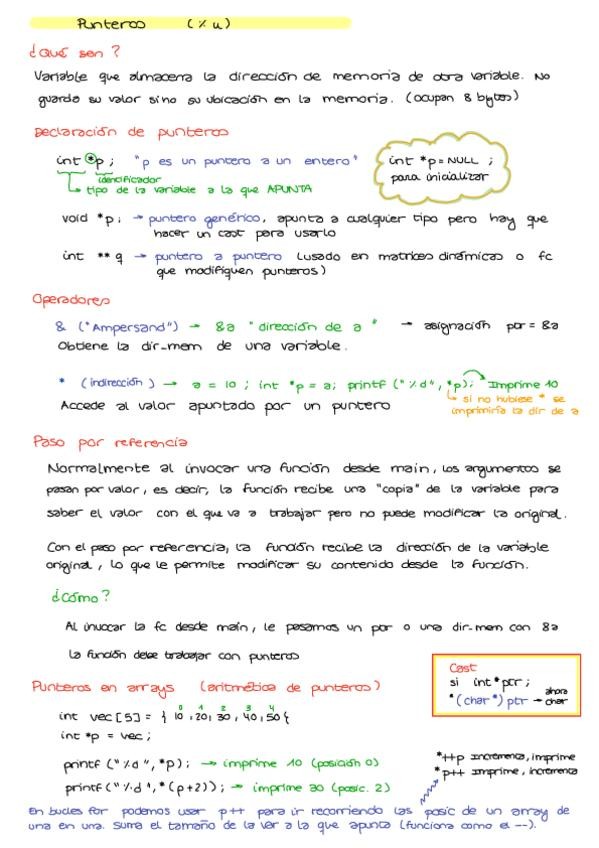 Punteros (%u)
¿Qué son?
Variable que almacena la dirección de memoria de otra variable. No
guarda su valor sino su ubicación en la memoria. (ocupan 8 bytes)
Declaración de punteros
int *p; "p es un puntero a un entero"
identificador
tipo de la variable a la que APUNTA
int *p = NULL ;
para inicializar
void *p; → puntero genérico, apunta a cualquier tipo pero hay que
hacer un cast para usarlo
int ** q → puntero a puntero (usado en matrices dinámicas o fc
que modifiquen punteros)
Operadores
& ("Ampersand") → &a "dirección de a" → asignación por = &a
Obtiene la dir-mem de una variable.
* (indirección) → a = 10 ; int *p = a; printf ("%d", *p); Imprime 10
si no hubiese * se
imprimiría la dir de a
Accede al valor apuntado por un puntero
Paso por referencia
Normalmente al invocar una función desde main, los argumentos se
pasan por valor, es decir, la función recibe una "copia" de la variable para
saber el valor con el que va a trabajar pero no puede modificar la original.
Con el paso por referencia, la función recibe la dirección de la variable
original, lo que le permite modificar su contenido desde la función.
¿Cómo?
Al invocar la fc desde main, le pasamos un por o una dir-mem con &a
la función debe trabajar con punteros
Cast
si int *ptr ;
*(char *) ptr → ahora char
Punteros en arrays (aritmética de punteros)
0 1 2 3 4
int vec [5] = { 10, 20, 30, 40, 50 {
int *p = vec ;
printf ("%d", *p); → imprime 10 (posición 0)
printf ("%d", *(p+2)); → imprime 30 (posic. 2)
*++p Incrementa, imprime
*p++ Imprime, incrementa
En bucles for podemos usar p++ para ir recorriendo las posic de un array de
una en una. Suma el tamaño de la var a la que apunta (funciona como el --).